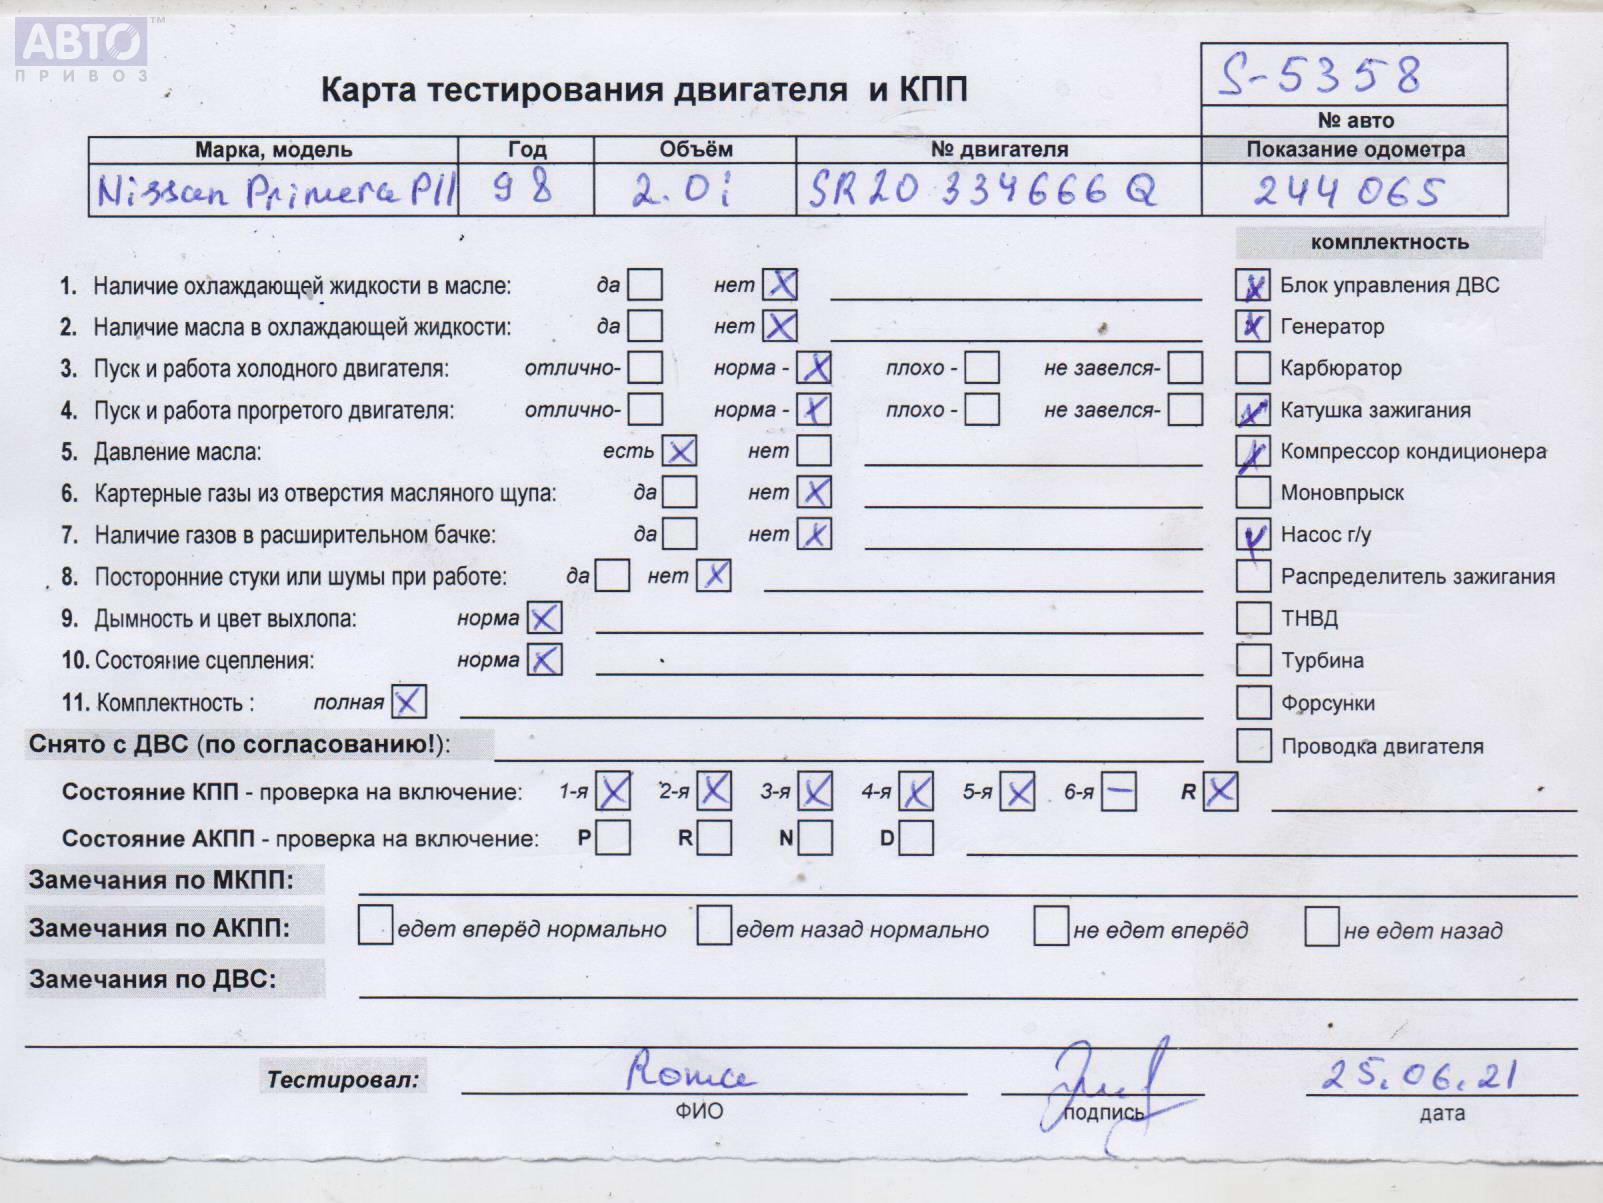 АВТО™
ПРИВОЗ
S-5358
Карта тестирования двигателя и КПП
№ авто
Марка, модель Год Объём № двигателя Показание одометра
Nissan Primera P11 98 2.0i SR20 334666Q 244 065
комплектность
1. Наличие охлаждающей жидкости в масле: да нет X Блок управления ДВС X
2. Наличие масла в охлаждающей жидкости: да нет X Генератор X
3. Пуск и работа холодного двигателя: отлично- норма - X плохо - не завелся- Карбюратор
4. Пуск и работа прогретого двигателя: отлично- норма - X плохо - не завелся- X Катушка зажигания
5. Давление масла: есть X нет X Компрессор кондиционера
6. Картерные газы из отверстия масляного щупа: да нет X Моновпрыск
7. Наличие газов в расширительном бачке: да нет X X Насос г/у
8. Посторонние стуки или шумы при работе: да нет X Распределитель зажигания
9. Дымность и цвет выхлопа: норма X ТНВД
10. Состояние сцепления: норма X Турбина
11. Комплектность : полная X Форсунки
Снято с ДВС (по согласованию!): Проводка двигателя
Состояние КПП - проверка на включение: 1-я X 2-я X 3-я X 4-я X 5-я X 6-я — R X
Состояние АКПП - проверка на включение: P R N D
Замечания по МКПП:
Замечания по АКПП: едет вперёд нормально едет назад нормально не едет вперёд не едет назад
Замечания по ДВС:
Тестировал: Roma 25.06.21
ФИО подпись дата